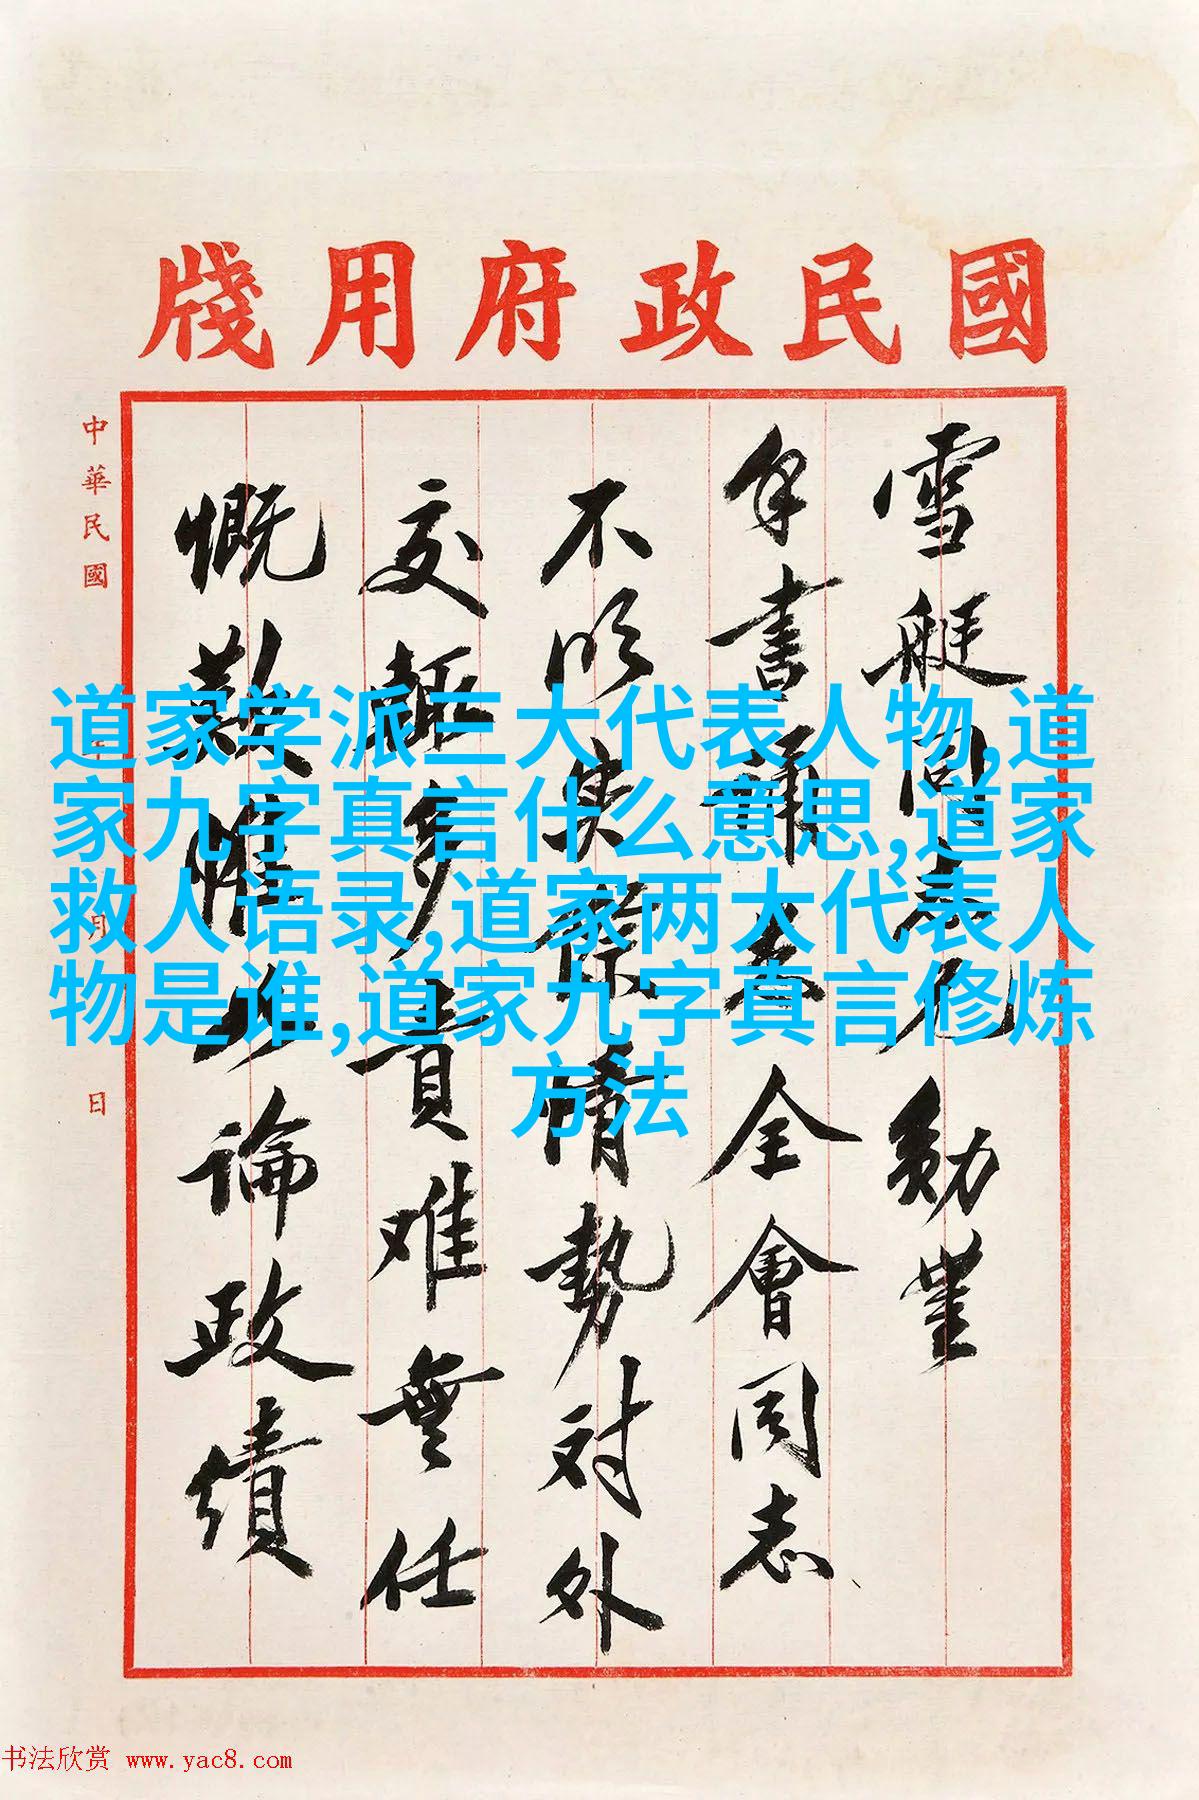 國民政府用牋
雪艇同志兄勛鑒
手書誦悉全會同志
不明實際情勢對外
交輒多責难無任
慨歎惟以論政績
中華民國 月 日
道家学派三大代表人物,道
家九字真言什么意思,道家
救人语录,道家两大代表人
物是谁,道家九字真言修炼
方法
书法欣赏 www.yac8.com